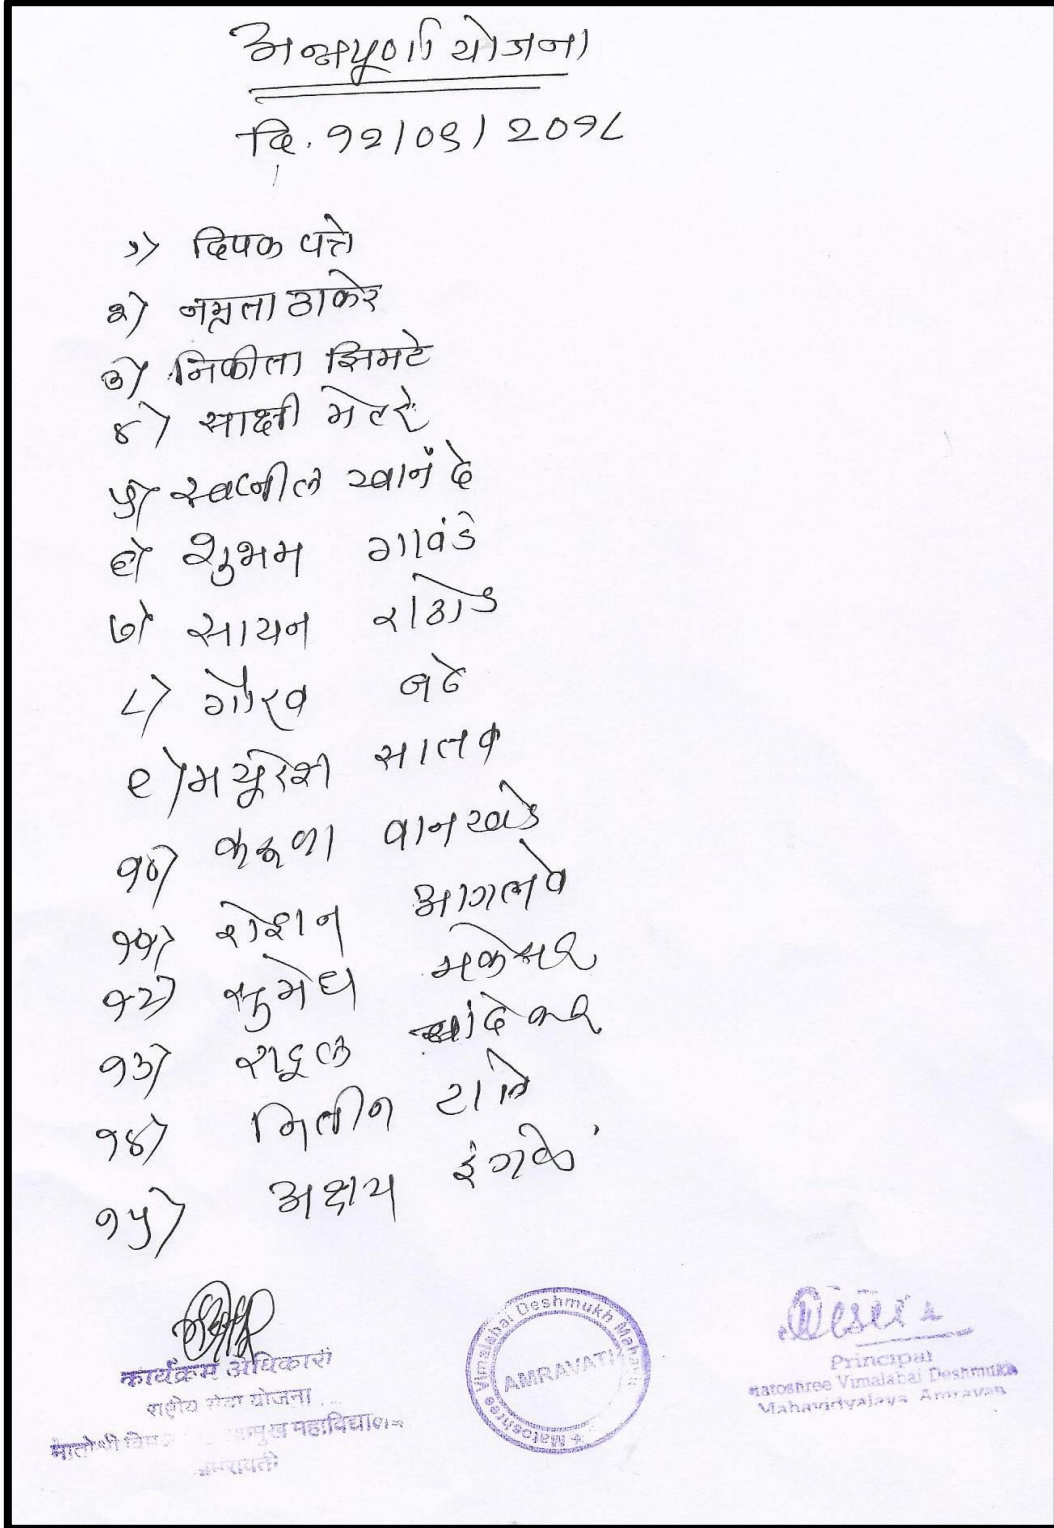 अन्नपूर्णा योजना
दि. १२/०९/२०१८
१) दिपक धत्रे
२) नम्रता ठाकरे
३) निकीता झिमटे
४) साक्षी मेटरे
५) स्वप्नील खानंदे
६) शुभम गावंडे
७) सायन राठोड
८) गौरव
९) मयुरेशी सातव
१०) करूणा वानखडे
११) रोशन आगलवे
१२) सुमेध मकेसर
१३) राहूल चांदेकर
१४)
१५) अक्षय इंगळे
कार्यक्रम अधिकारी
राष्ट्रीय सेवा योजना
मातोश्री महाविद्यालय
अमरावती
Matoshree Vimalabai Deshmukh
AMRAVATI
Principal
Matoshree Vimalabai Deshmukh
Mahavidyalaya Amravati